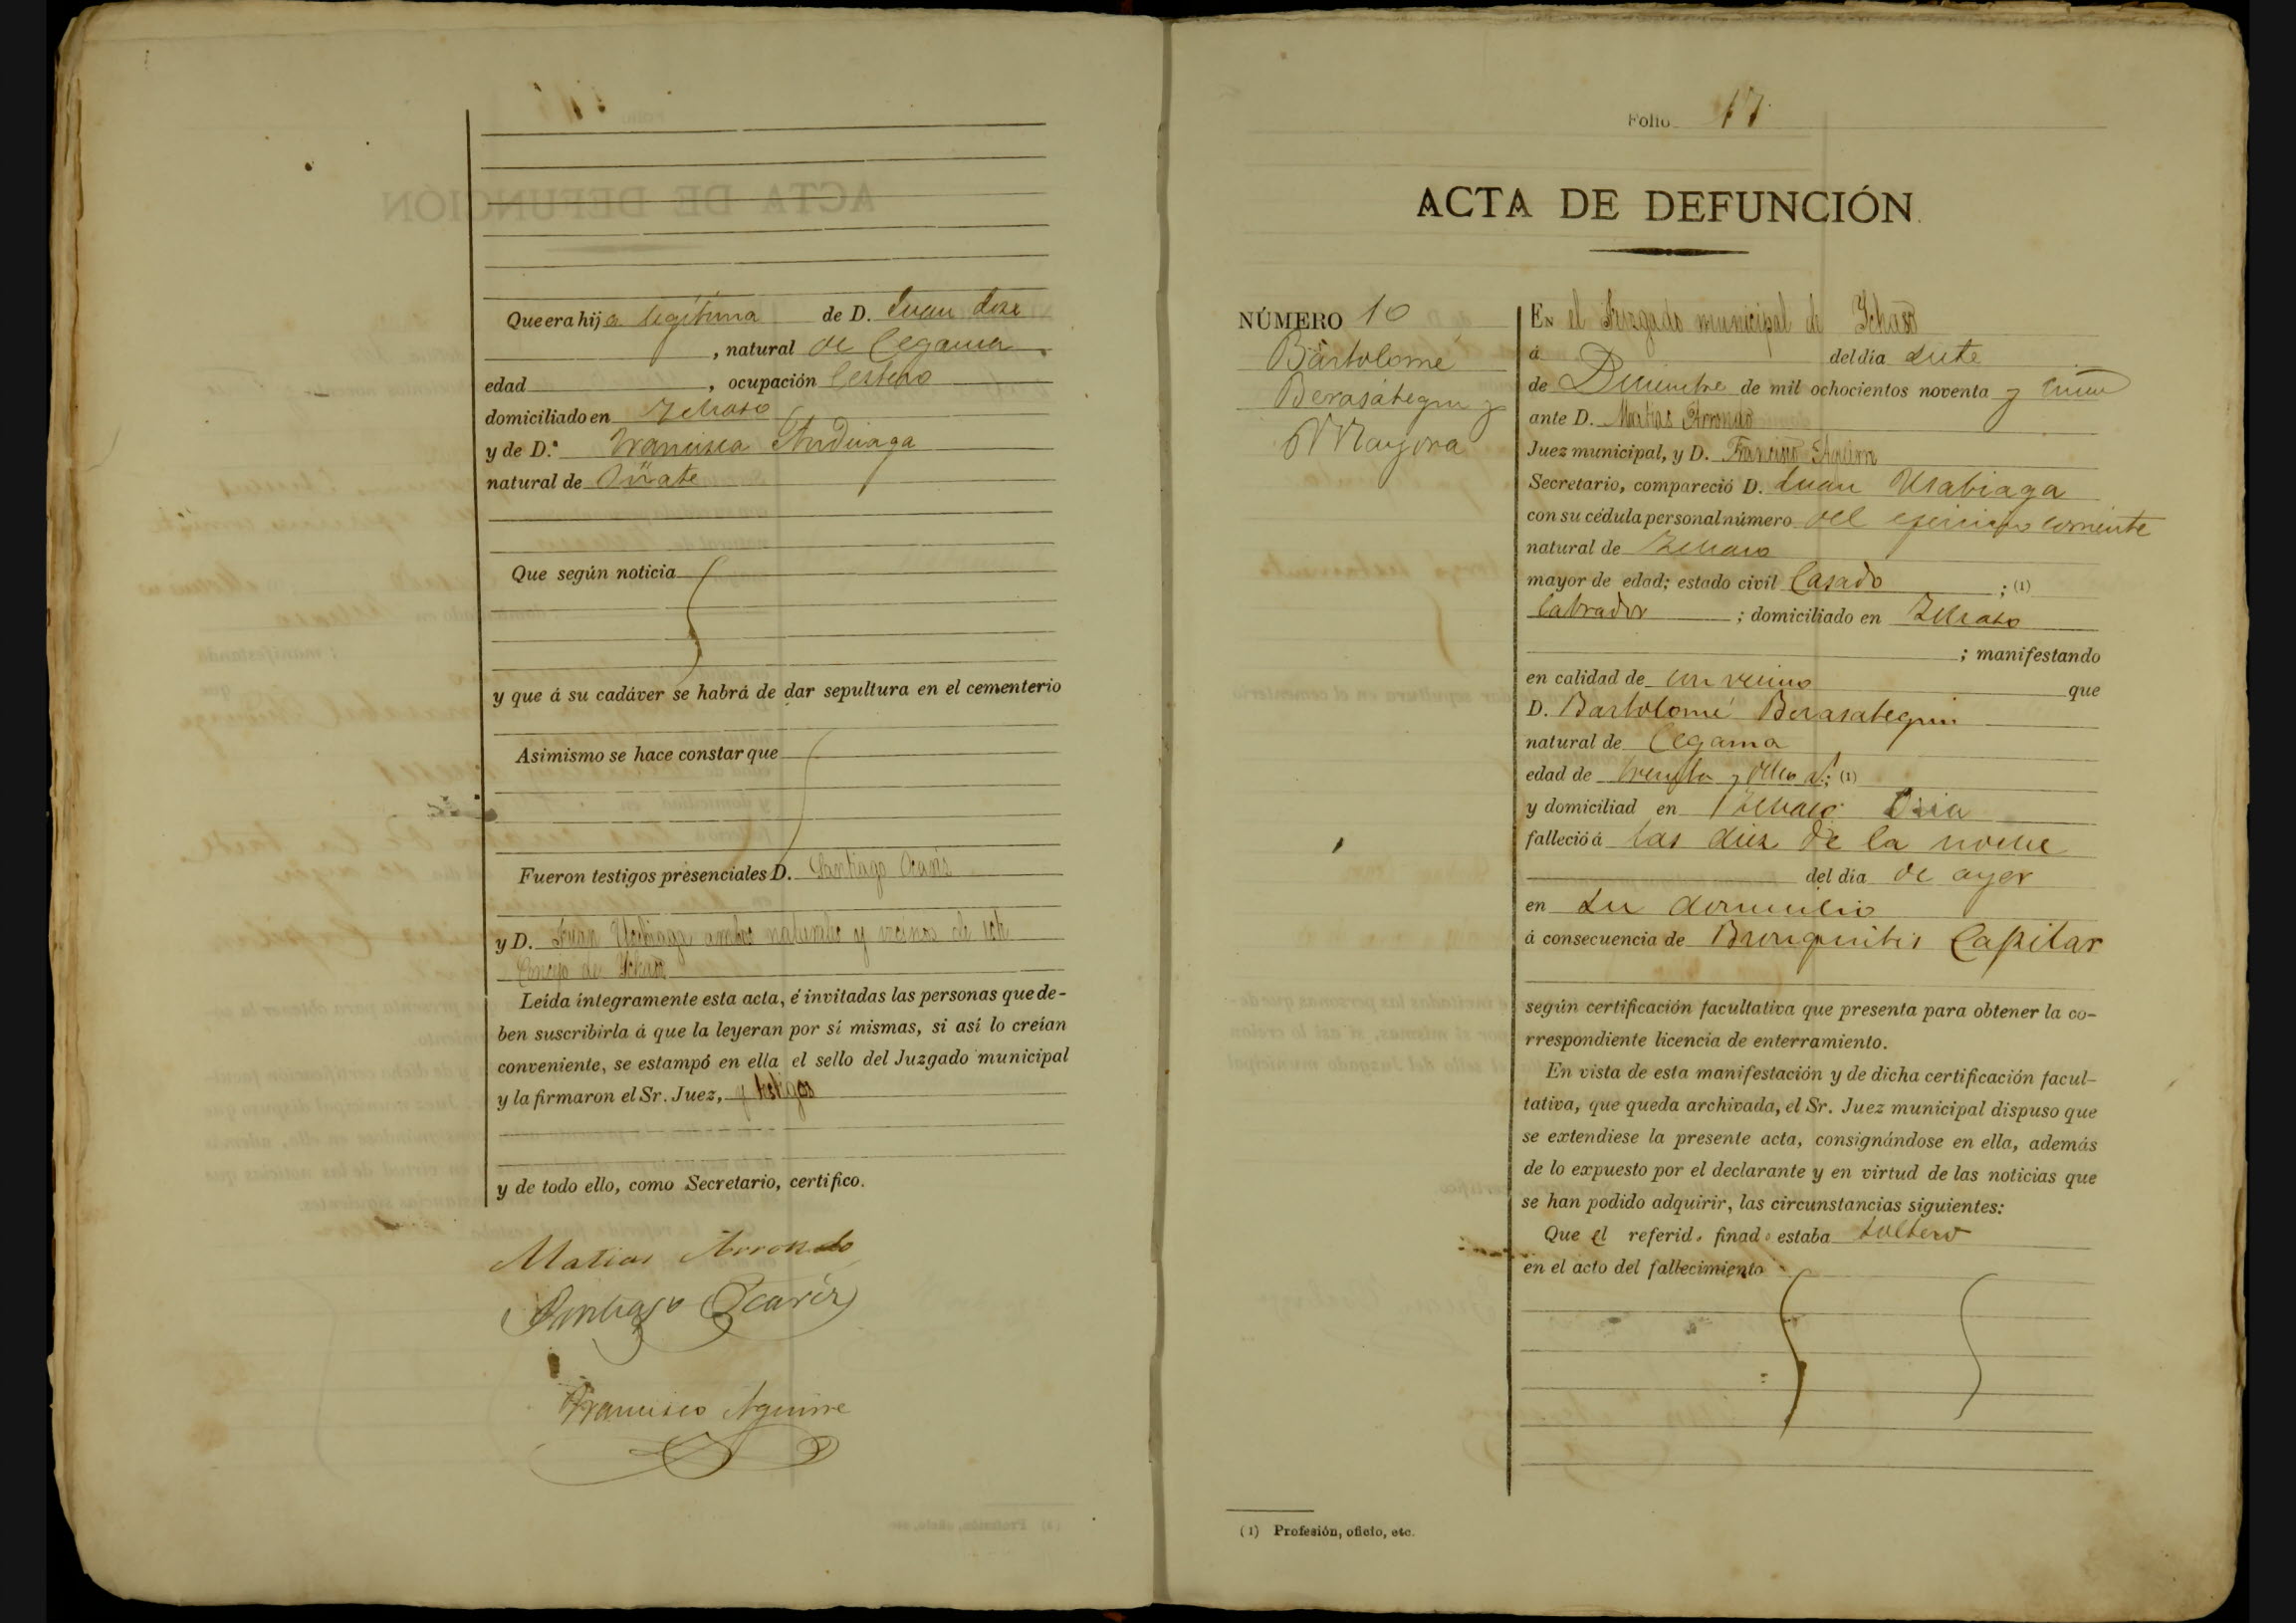 Que era hija legítima de D. Juan José
, natural de Cegama
edad , ocupación Cestero
domiciliado en Ichaso
y de D.ª Francisca Andueaga
natural de Oñate
Que según noticia
y que á su cadáver se habrá de dar sepultura en el cementerio
Asimismo se hace constar que
Fueron testigos presenciales D. Santiago Ocariz
y D. Juan Usabiaga ambos naturales y vecinos de este
Concejo de Ichaso
Leída íntegramente esta acta, é invitadas las personas que de-
ben suscribirla á que la leyeran por sí mismas, si así lo creían
conveniente, se estampó en ella el sello del Juzgado municipal
y la firmaron el Sr. Juez, y testigos
y de todo ello, como Secretario, certifico.
Matias Arrondo
Santiago Ocariz
Francisco Aguirre
Folio 17
ACTA DE DEFUNCIÓN.
NÚMERO 10
Bartolomé
Berasátegui y
Mayora
EN el Juzgado municipal de Ichaso
á del día siete
de Diciembre de mil ochocientos noventa y
ante D. Matias Arrondo
Juez municipal, y D. Francisco Aguirre
Secretario, compareció D. Juan Usabiaga
con su cédula personal número del ejercicio corriente
natural de Ichaso
mayor de edad; estado civil Casado ; (1)
labrador ; domiciliado en Ichaso
; manifestando
en calidad de un vecino que
D. Bartolomé Berasategui
natural de Cegama
edad de treinta y ocho a.; (1)
y domiciliad en Ichaso
falleció á las diez de la noche
del día de ayer
en su domicilio
á consecuencia de Bronquitis Capilar
según certificación facultativa que presenta para obtener la co-
rrespondiente licencia de enterramiento.
En vista de esta manifestación y de dicha certificación facul-
tativa, que queda archivada, el Sr. Juez municipal dispuso que
se extendiese la presente acta, consignándose en ella, además
de lo expuesto por el declarante y en virtud de las noticias que
se han podido adquirir, las circunstancias siguientes:
Que el referido finado estaba soltero
en el acto del fallecimiento
(1) Profesión, oficio, etc.